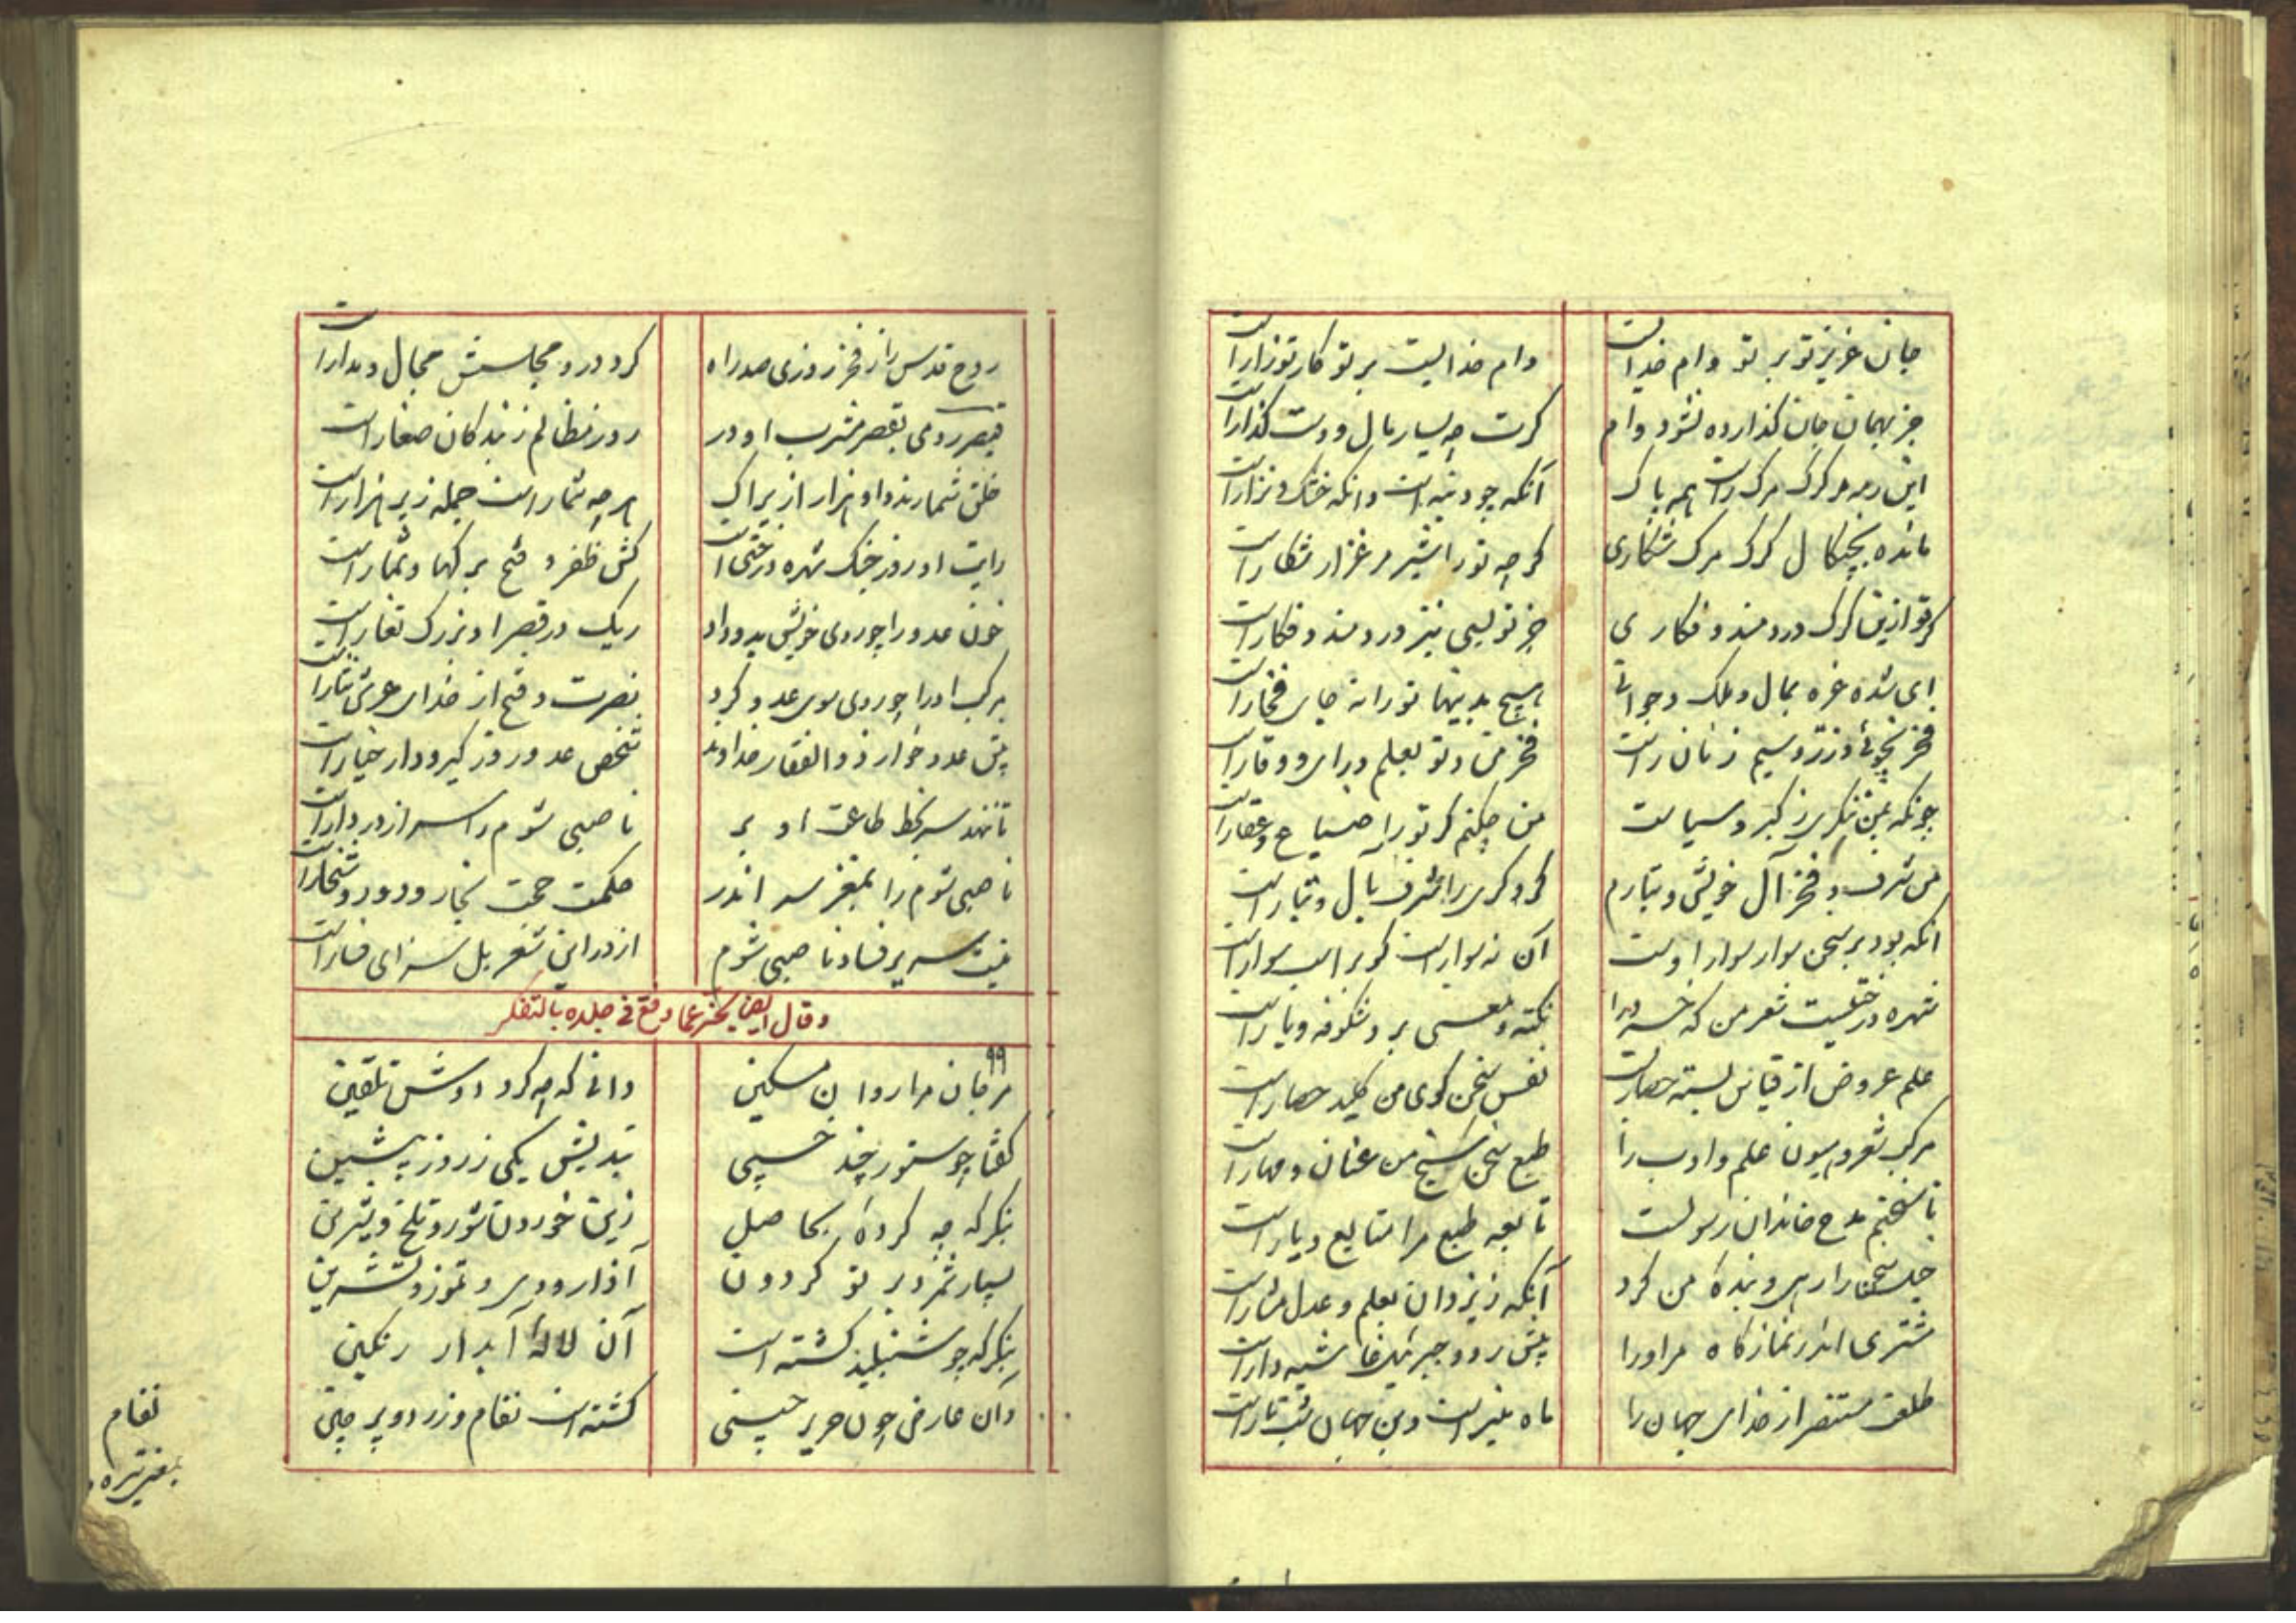 جان عزیز تو بر تو وام خداست
وام خدایست بر تو کار تو زار است
جز بهمان جان گذارده نشود وام
گرت چه بسیار مال و دست گذار است
این رمه مر گرگ مرگ راست همه پاک
آنکه چو دنبه است وانکه خشک و نزار است
مانده بچنگال گرگ مرگ شکاری
گرچه تو را شیر مرغزار شکار است
گر تو ازین گرگ دردمند و فکاری
جز تو بسی نیز دردمند و فکار است
ای شده غره بمال و ملک و جوانی
هیچ بدینها تو را نه جای فخار است
فخر بخوبی و زر و سیم زنان راست
فخر من و تو بعلم و رای و وقار است
چونکه بمن ننگری ز کبر و سیاست
من چکنم گر تو را ضیاع و عقار است
من شرف و فخر آل خویش و تبارم
گر دگری را شرف بآل و تبار است
آنکه بود بر سخن سوار سوار اوست
آن نه سوار است کو بر اسب سوار است
شهره درختیست شعر من که خرد را
نکته و معنی بر و شکوفه و بار است
علم عروض از قیاس بسته حصار است
نفس سخن گوی من کلید حصار است
مرکب شعر و هیون علم و ادب را
طبع سخن سنج من عنان و مهار است
تا سخنم مدح خاندان رسولست
تابعه طبع مرا متابع و یار است
خیل سخن را رهی و بنده من کرد
آنکه ز یزدان بعلم و عدل مشار است
مشتری اندر نمازگاه مر او را
پیش رو و جبرئیل غاشیه دار است
طلعت مستنصر از خدای جهان را
ماه منیر است وین جهان شب تار است
روح قدس را ز فخر روزی صد راه
گرد در و مجلسش مجال و مدار است
قیصر رومی بقصر مشرب او در
روز مظالم ز بندگان صغار است
خلق شمارند و او هزار ازیراک
هر چه شمار است جمله زیر هزار است
رایت او روز جنگ شهره درختی است
کش ظفر و فتح برگها و ثمار است
خون عدو را چو روی خویش بدو داد
ریک در قصر او بزرگ تغار است
مرکب او را چو روی سوی عدو کرد
نصرت و فتح از خدای عرش نثار است
پیش عدو خوار ذوالفقار خداوند
شخص عدو روز گیرودار خیار است
تا ننهد سر بخط طاعت او بر
ناصبی شوم را سر از در دار است
ناصبی شوم را بمغز سر اندر
حکمت حجت بخار و دود و شخار است
نیست سر پر فساد ناصبی شوم
از در این شعر بل سزای فسار است
وقال ایضا یخبر عما وقع فی خلده بالتفکر
۹۹
مر جان مرا روان مسکین
دانی که چه کرد دوش تلقین
گفتا چو ستور چند خسپی
بندیش یکی ز روز پیشین
بنگر که چه کرده‌ای بحاصل
زین خوردن شور و تلخ و شیرین
بسیار شمرد بر تو گردون
آذار و دی و تموز و تشرین
بنگر که چو شنبلید گشته است
آن لالهٔ آبدار رنگین
وان عارض چون حریر چینی
گشته است نفام و زرد و پر چین
نفام
بمعنی تیره